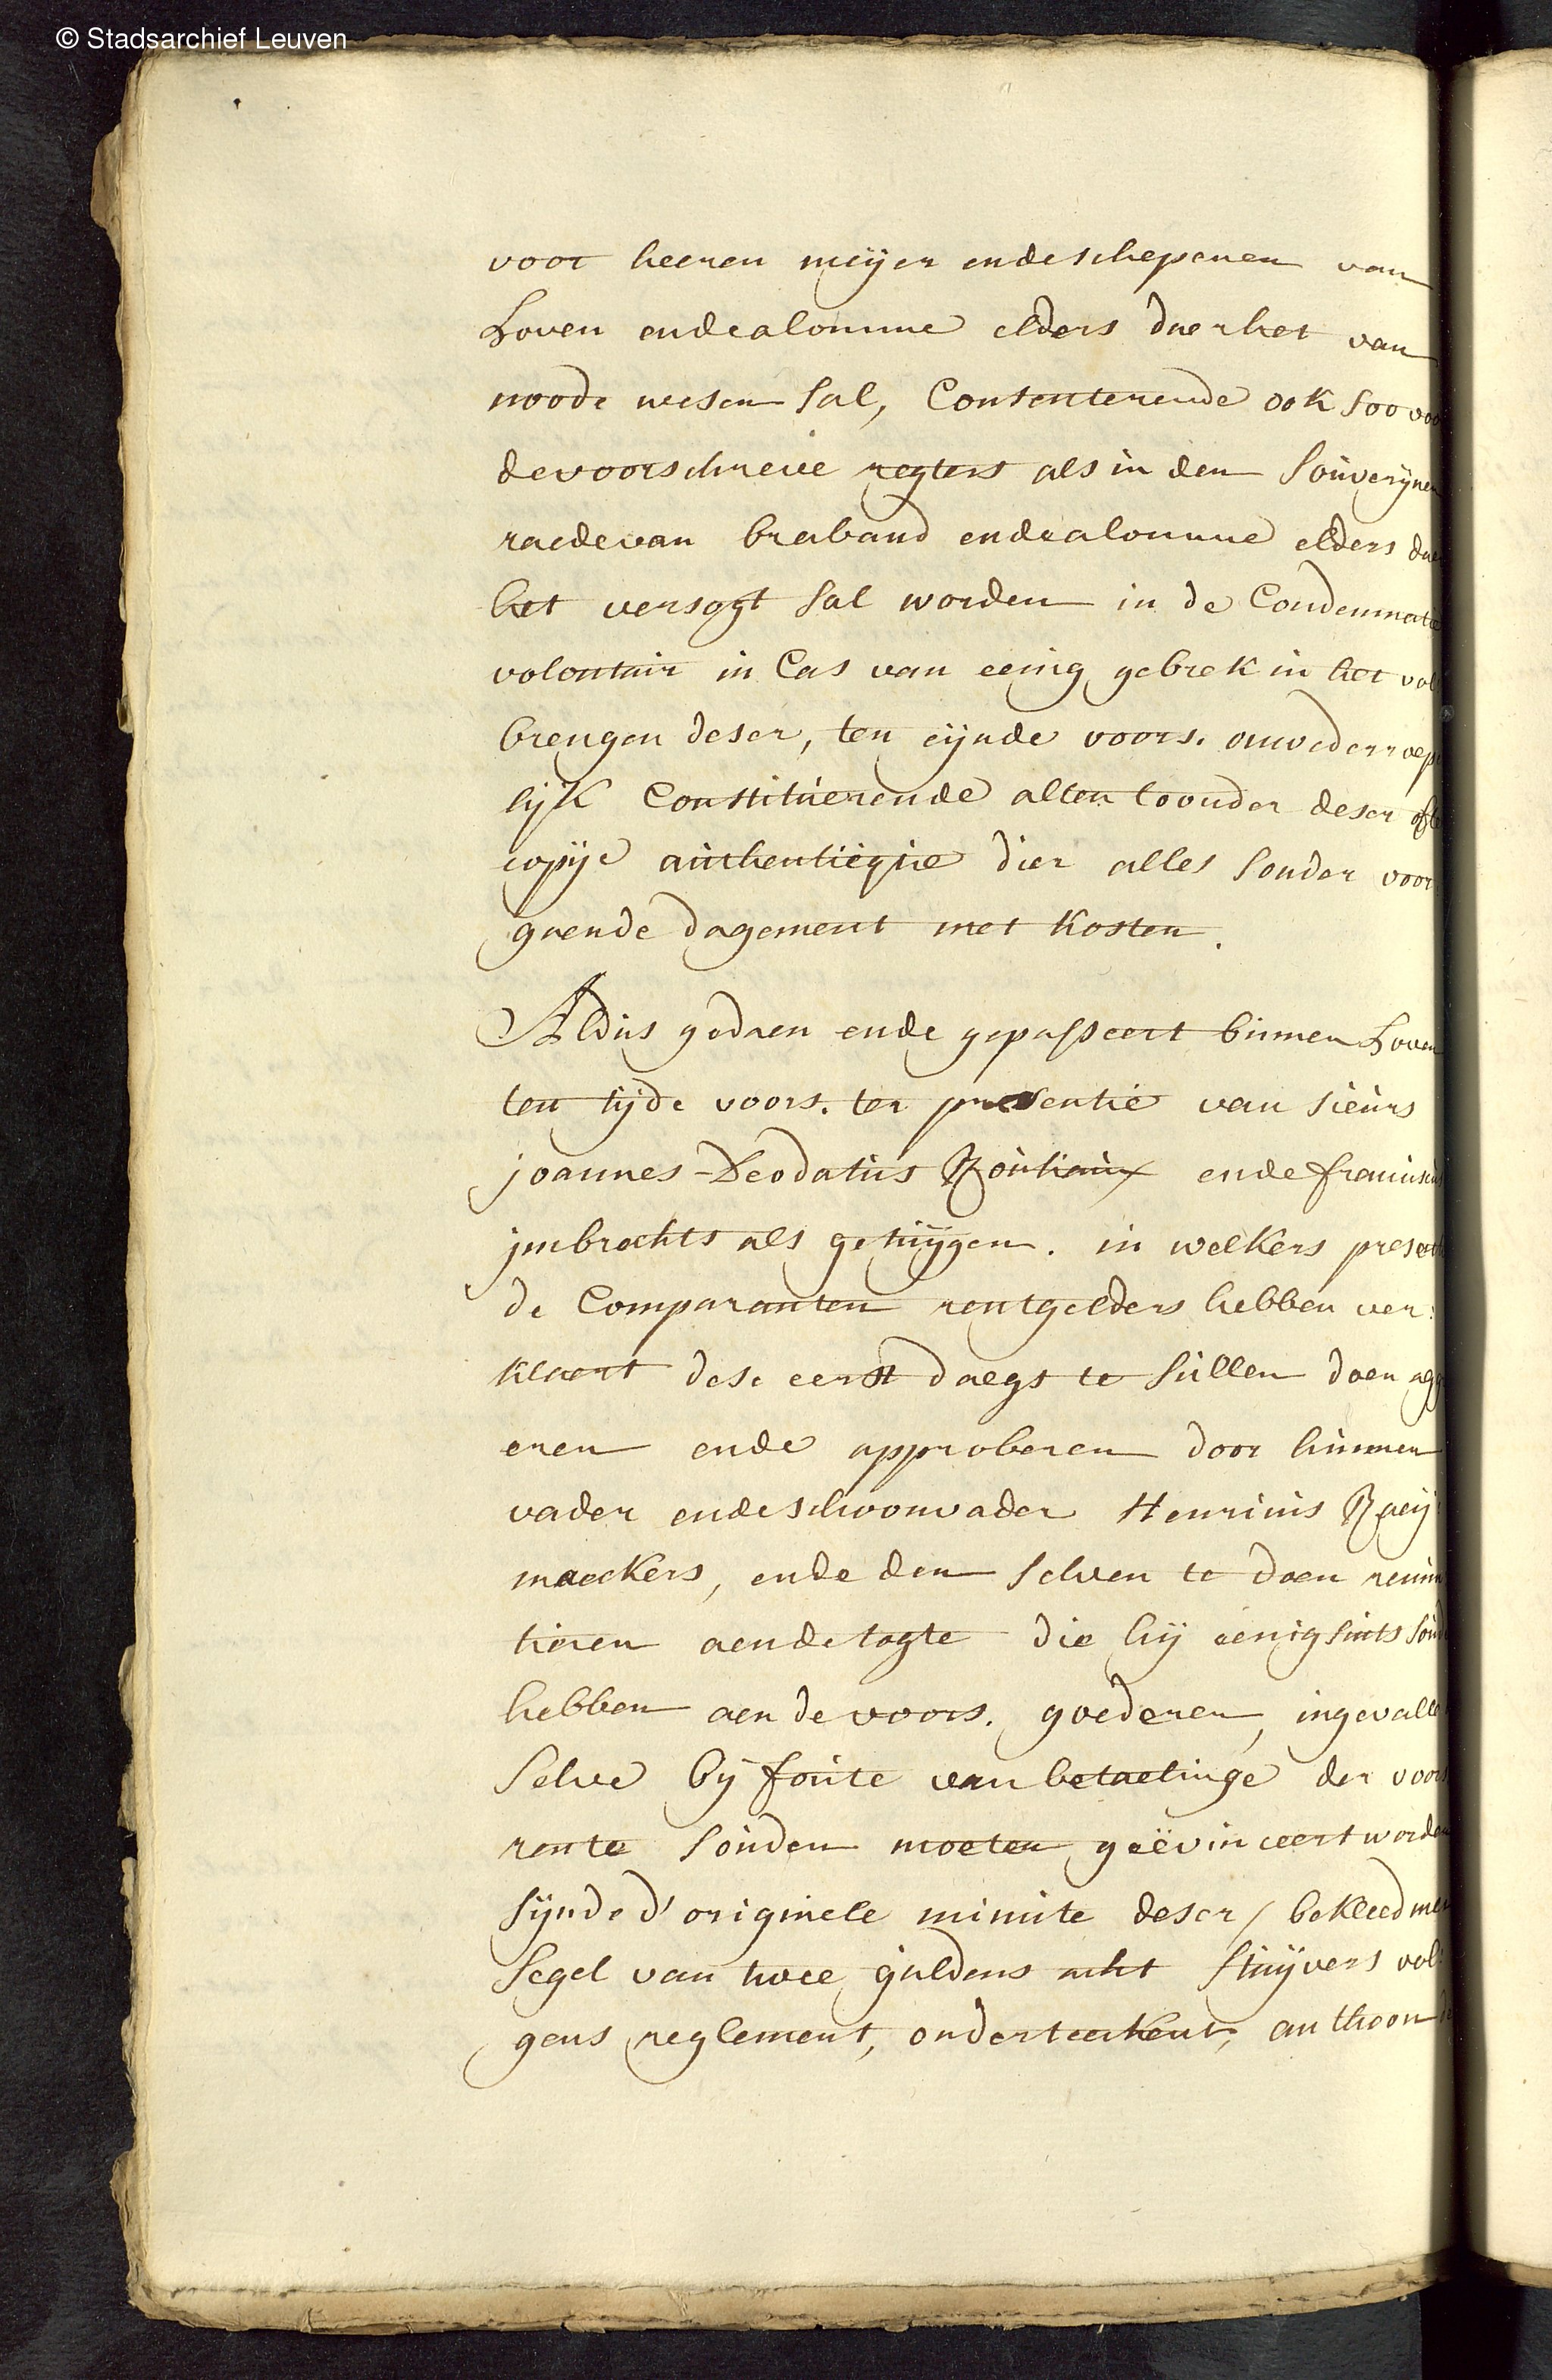 © Stadsarchief Leuven
voor heeren meijer ende schepenen van
Loven ende alomme elders daer het van
noode wesen sal, Consenterende ook soo voo
de voorschreve regters als in den souverijnen
raede van braband ende alomme elders dae
het versogt sal worden in de Condemnatie
volontair in Cas van eenig gebrek in het vol
brengen deser, ten eijnde voors. onwederroep
lijk Constituerende alten toonder deser ofte
copije authentieque dier alles sonder voor
gaende dagement met kosten.
Aldus gedaen ende gepasseert binnen Loven
ten tijde voors. ter presentie van sieurs
joannes-Deodatus Routiaux ende franciscus
jmbrechts als getuijgen. in welkers presentie
de Comparanten rentgelders hebben ver:
klaert dese eerst daegs te sullen doen agg
eren ende approberen door hunnen
vader ende schoonvader Henricus Raeij:
maeckers, ende den selven te doen renun
tieren aen de togte die hij eenigsints soude
hebben aen de voors. goederen, ingevalle
selve bij foute van betaelinge der voors
rente souden moeten geëvinceert worden
sijnde d'originele minute deser / bekleed met
segel van twee guldens acht stuijvers vol:
gens reglement, onderteekent, anthoon de